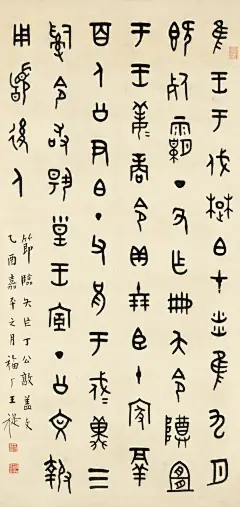 隹王于伐楚白才炎隹九月
既死霸丁丑乍册夨令尊宜
于王姜商令貝朋臣十家鬲
百人公尹白丁父兄于戍冀三
令敢揚皇王室丁公文報
用後人
節臨夨乍丁公敦蓋文
乙酉嘉平之月福厂王禔